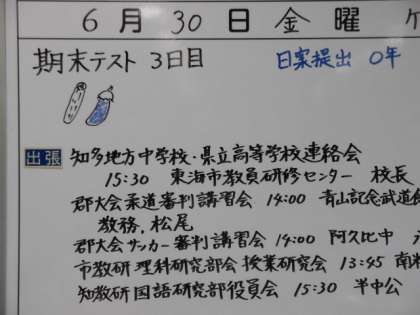 6月30日金曜
期末テスト 3日目 日案提出 0年
出張 知多地方中学校・県立高等学校連絡会
15:30 東海市教員研修センター 校長
郡大会柔道審判講習会 14:00 青山記念武道館
教務、松尾
郡大会サッカー審判講習会 14:00 阿久比中
市教研理科研究部会授業研究会 13:45 南
知教研国語研究部役員会 15:30 半中公